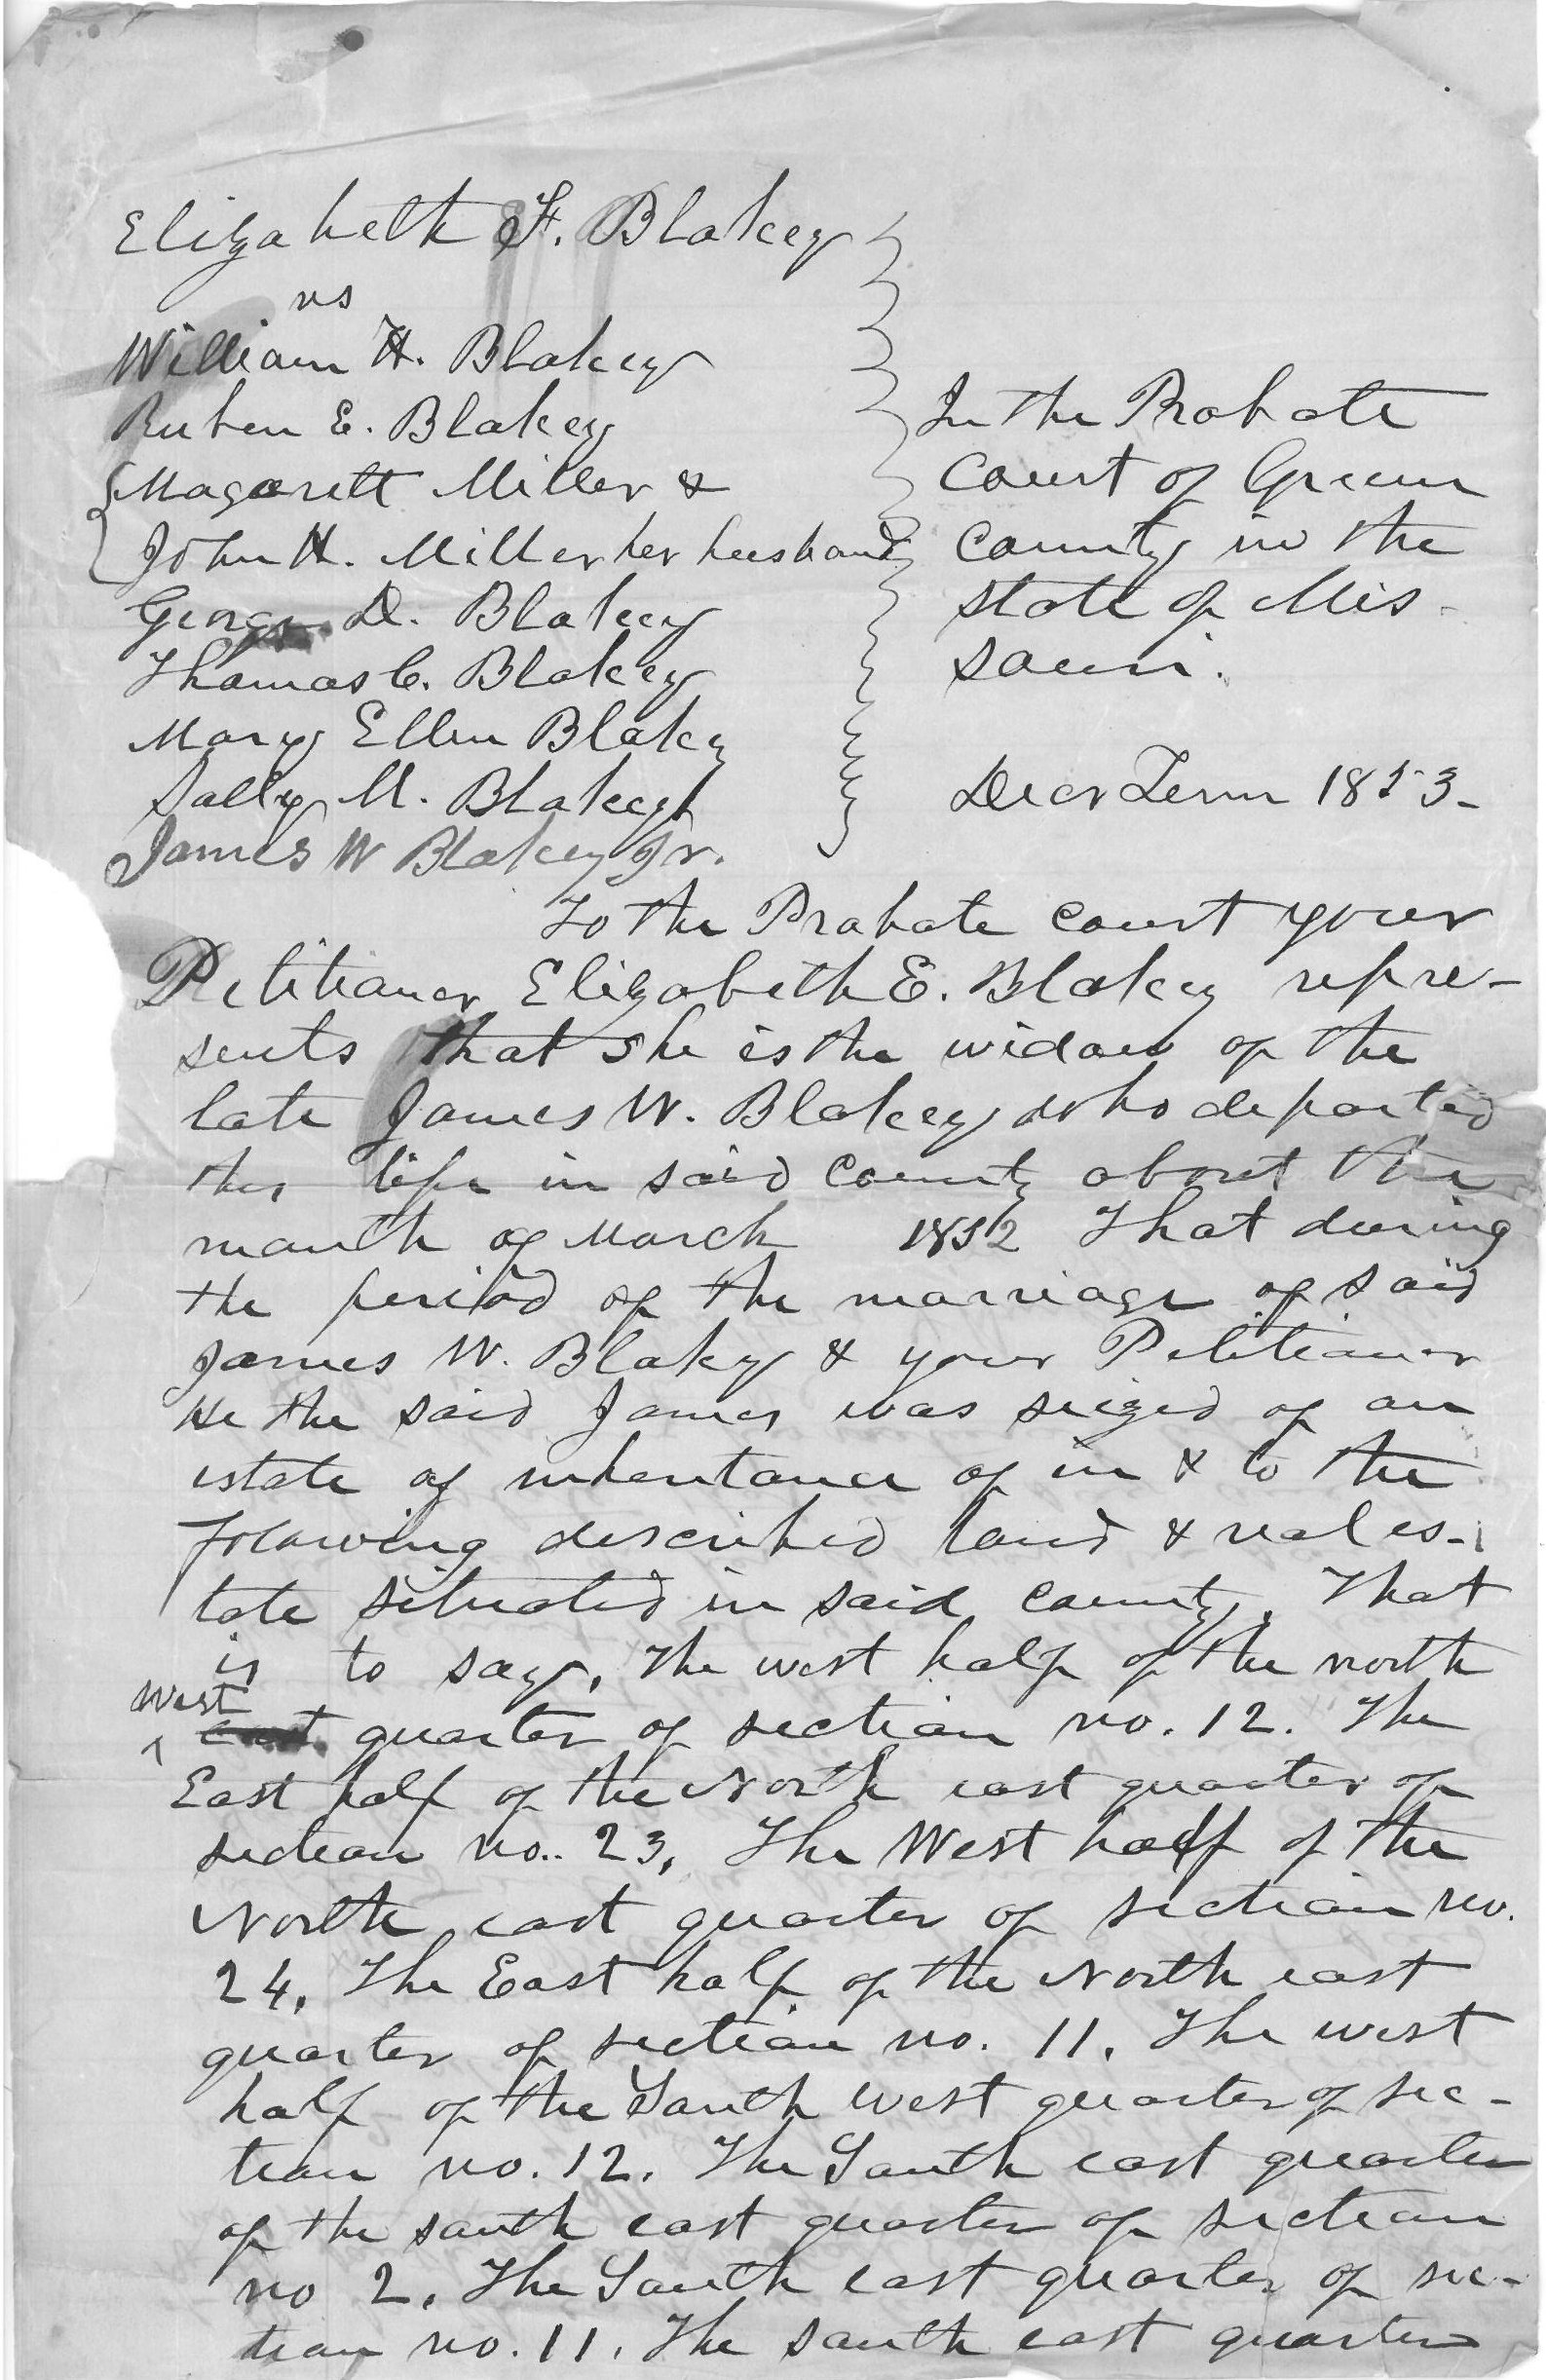 Elizabeth F. Blakey
vs
William H. Blakey
Ruben E. Blakey
Magarett Miller &
John H. Miller her husband
George D. Blakey
Thomas C. Blakey
Mary Ellen Blakey
Sally M. Blakey
James W Blakey Jr.
In the Probate
Court of Green
County in the
State of Mis-
souri.
Decr Term 1853-
To the Probate court your
Petitioner Elizabeth E. Blakey repre-
sents that she is the widow of the
late James W. Blakey who departed
this life in said County about the
month of March 1852 That during
the period of the marriage of said
James W. Blaky & your Petitioner
He the said James was seized of an
estate of inheritance of in & to the
folowing described land & real es-
tate situated in said county. That
is to say, The west half of the north
west
east quarter of section no. 12. The
East half of the North east quarter of
section no.. 23, The West half of the
North east quarter of section no.
24, The East half of the North east
quarter of section no. 11, The west
half of the South west quarter of sec-
tion no. 12. The South east quarter
of the south east quarter of section
no 2, The South east quarter of sec-
tion no. 11. The south east quarter